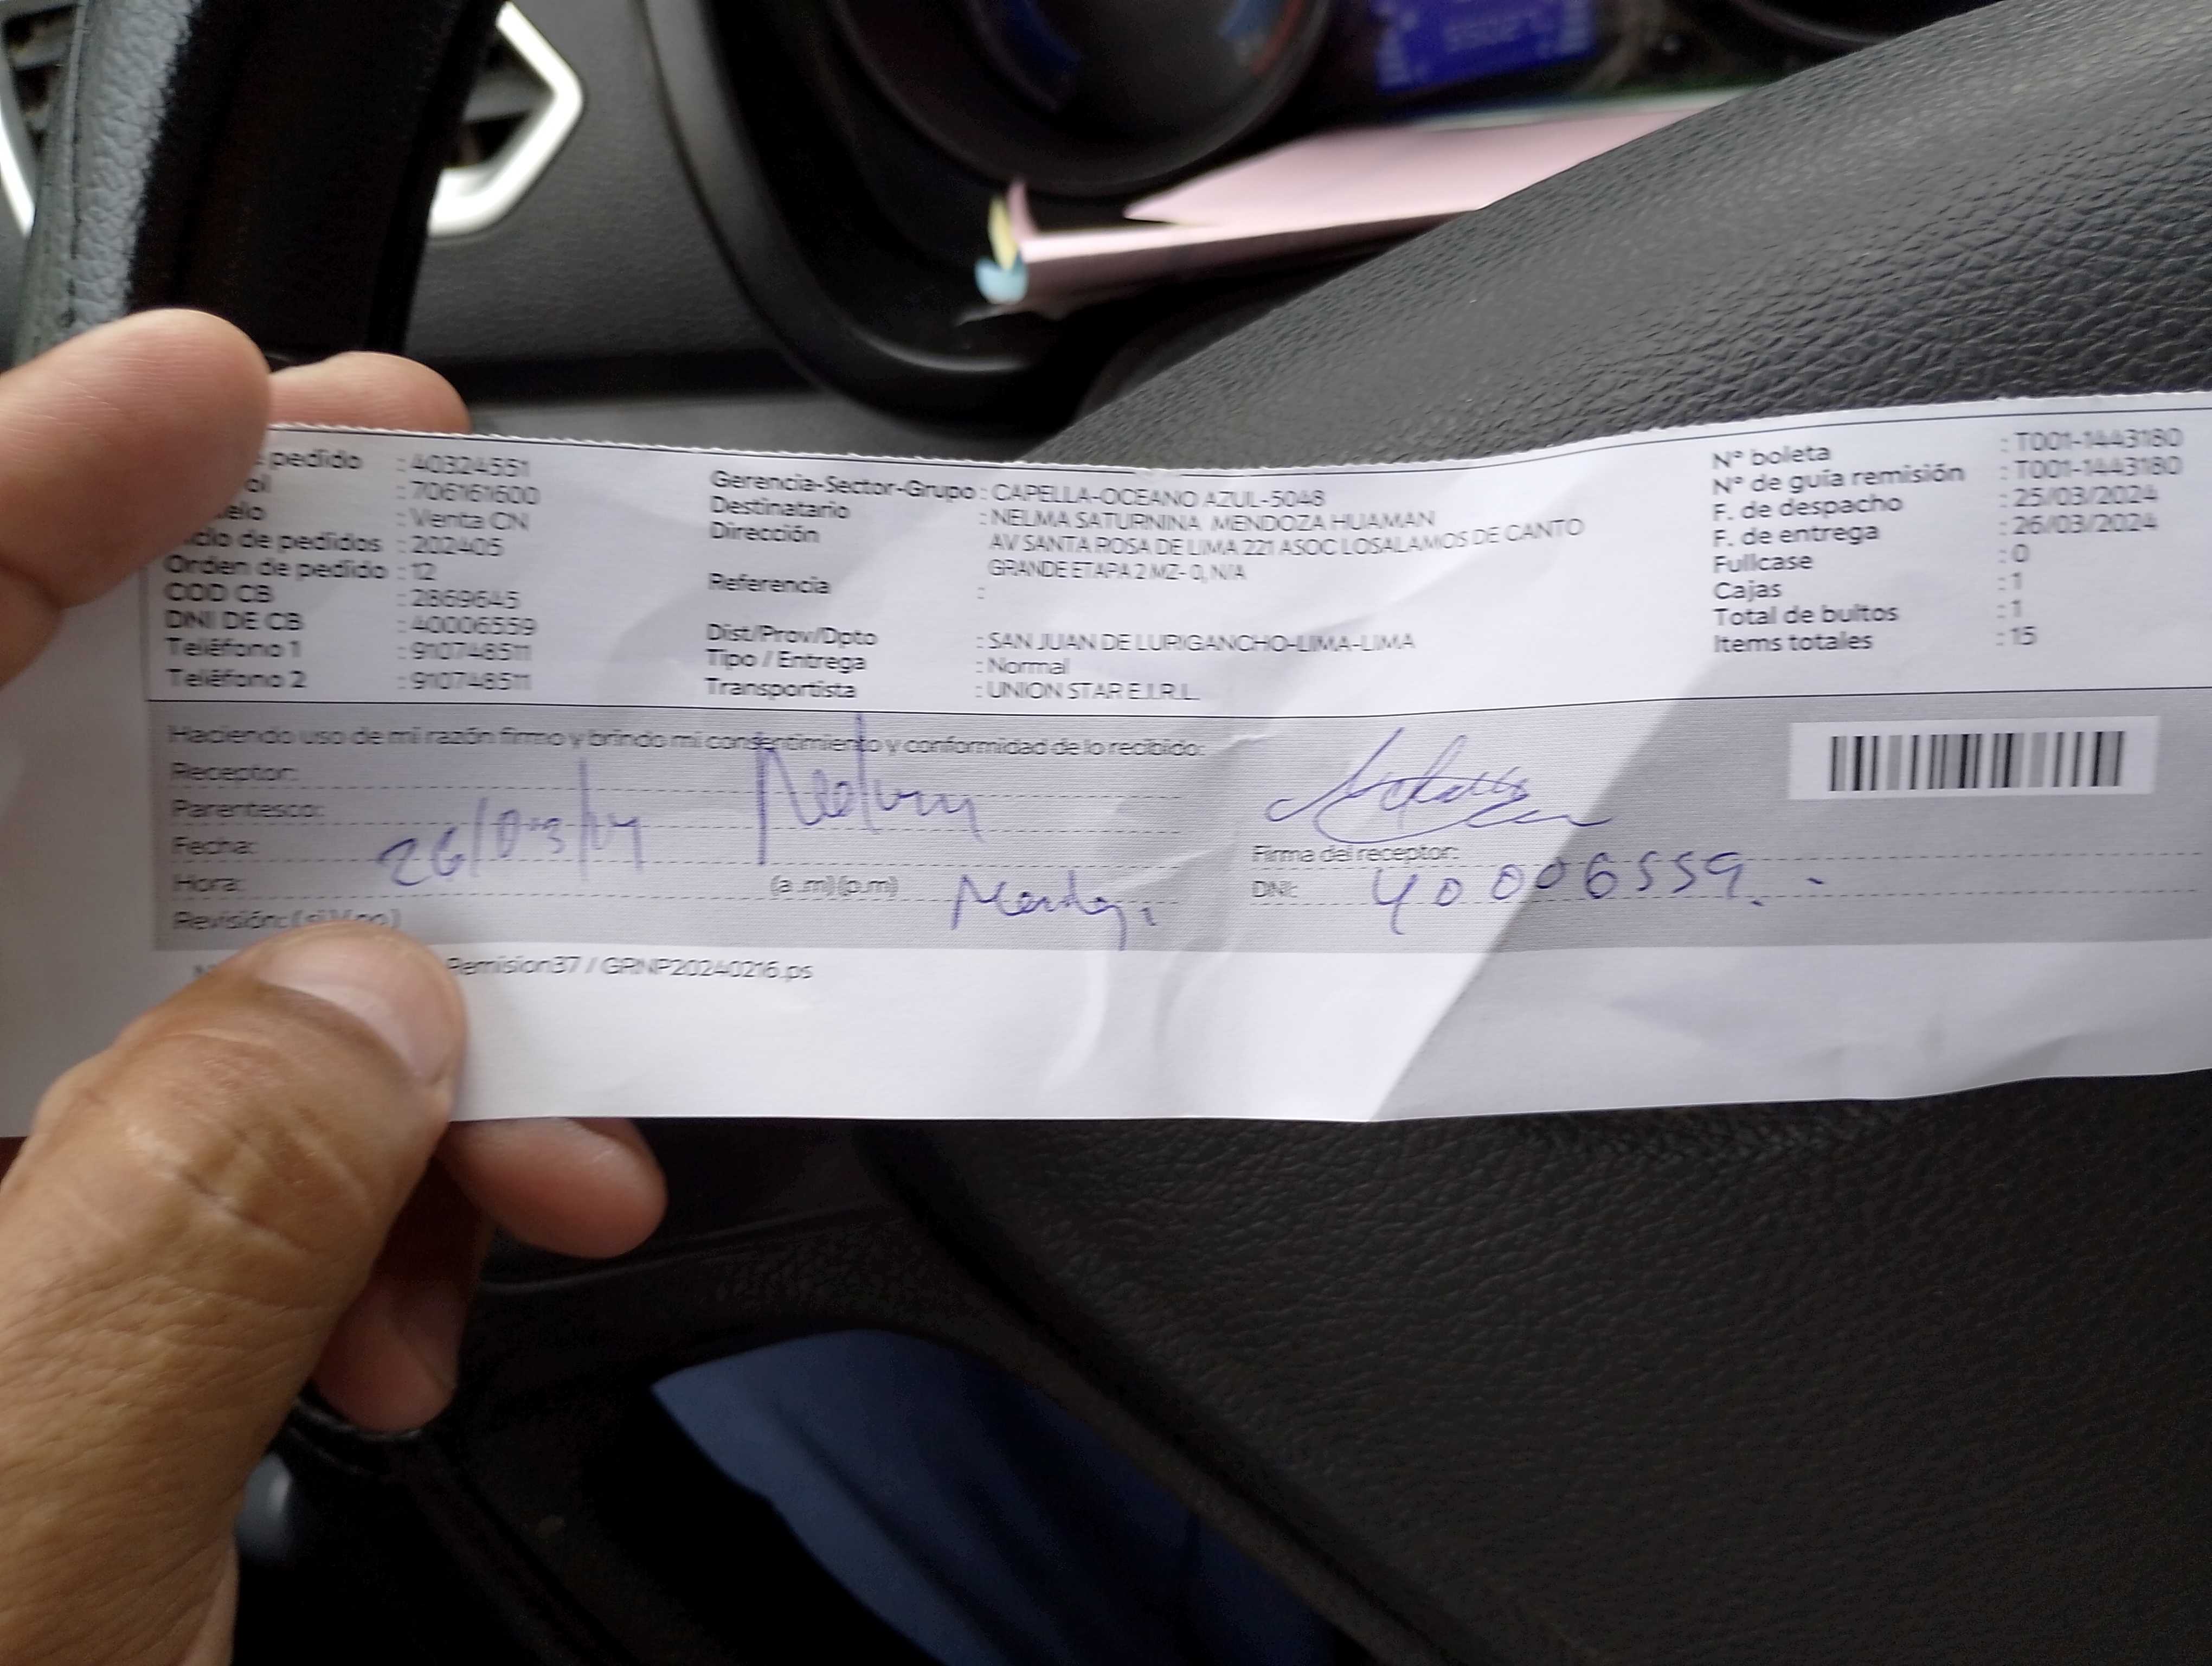 pedido : 40324551
ol : 706161600
elo : Venta CN
clo de pedidos : 202405
Orden de pedido : 12
COD CB : 2869645
DNI DE CB : 40006559
Teléfono 1 : 910748511
Teléfono 2 : 910748511
Gerencia-Sector-Grupo : CAPELLA-OCEANO AZUL-5048
Destinatario : NELMA SATURNINA MENDOZA HUAMAN
Dirección : AV SANTA ROSA DE LIMA 221 ASOC LOSALAMOS DE CANTO
GRANDE ETAPA 2 MZ- O, N/A
Referencia :
Dist/Prov/Dpto : SAN JUAN DE LURIGANCHO-LIMA-LIMA
Tipo / Entrega : Normal
Transportista : UNION STAR E.I.R.L.
N° boleta : T001-1443180
N° de guía remisión : T001-1443180
F. de despacho : 25/03/2024
F. de entrega : 26/03/2024
Fullcase : 0
Cajas : 1
Total de bultos : 1
Items totales : 15
Haciendo uso de mi razón firmo y brindo mi consentimiento y conformidad de lo recibido:
Receptor:
Parentesco:
Fecha:
Hora: (a.m)(p.m)
Revisión: (si)(no)
Firma del receptor:
DNI: 40006559.-
Remision37 / GRNP20240216.ps